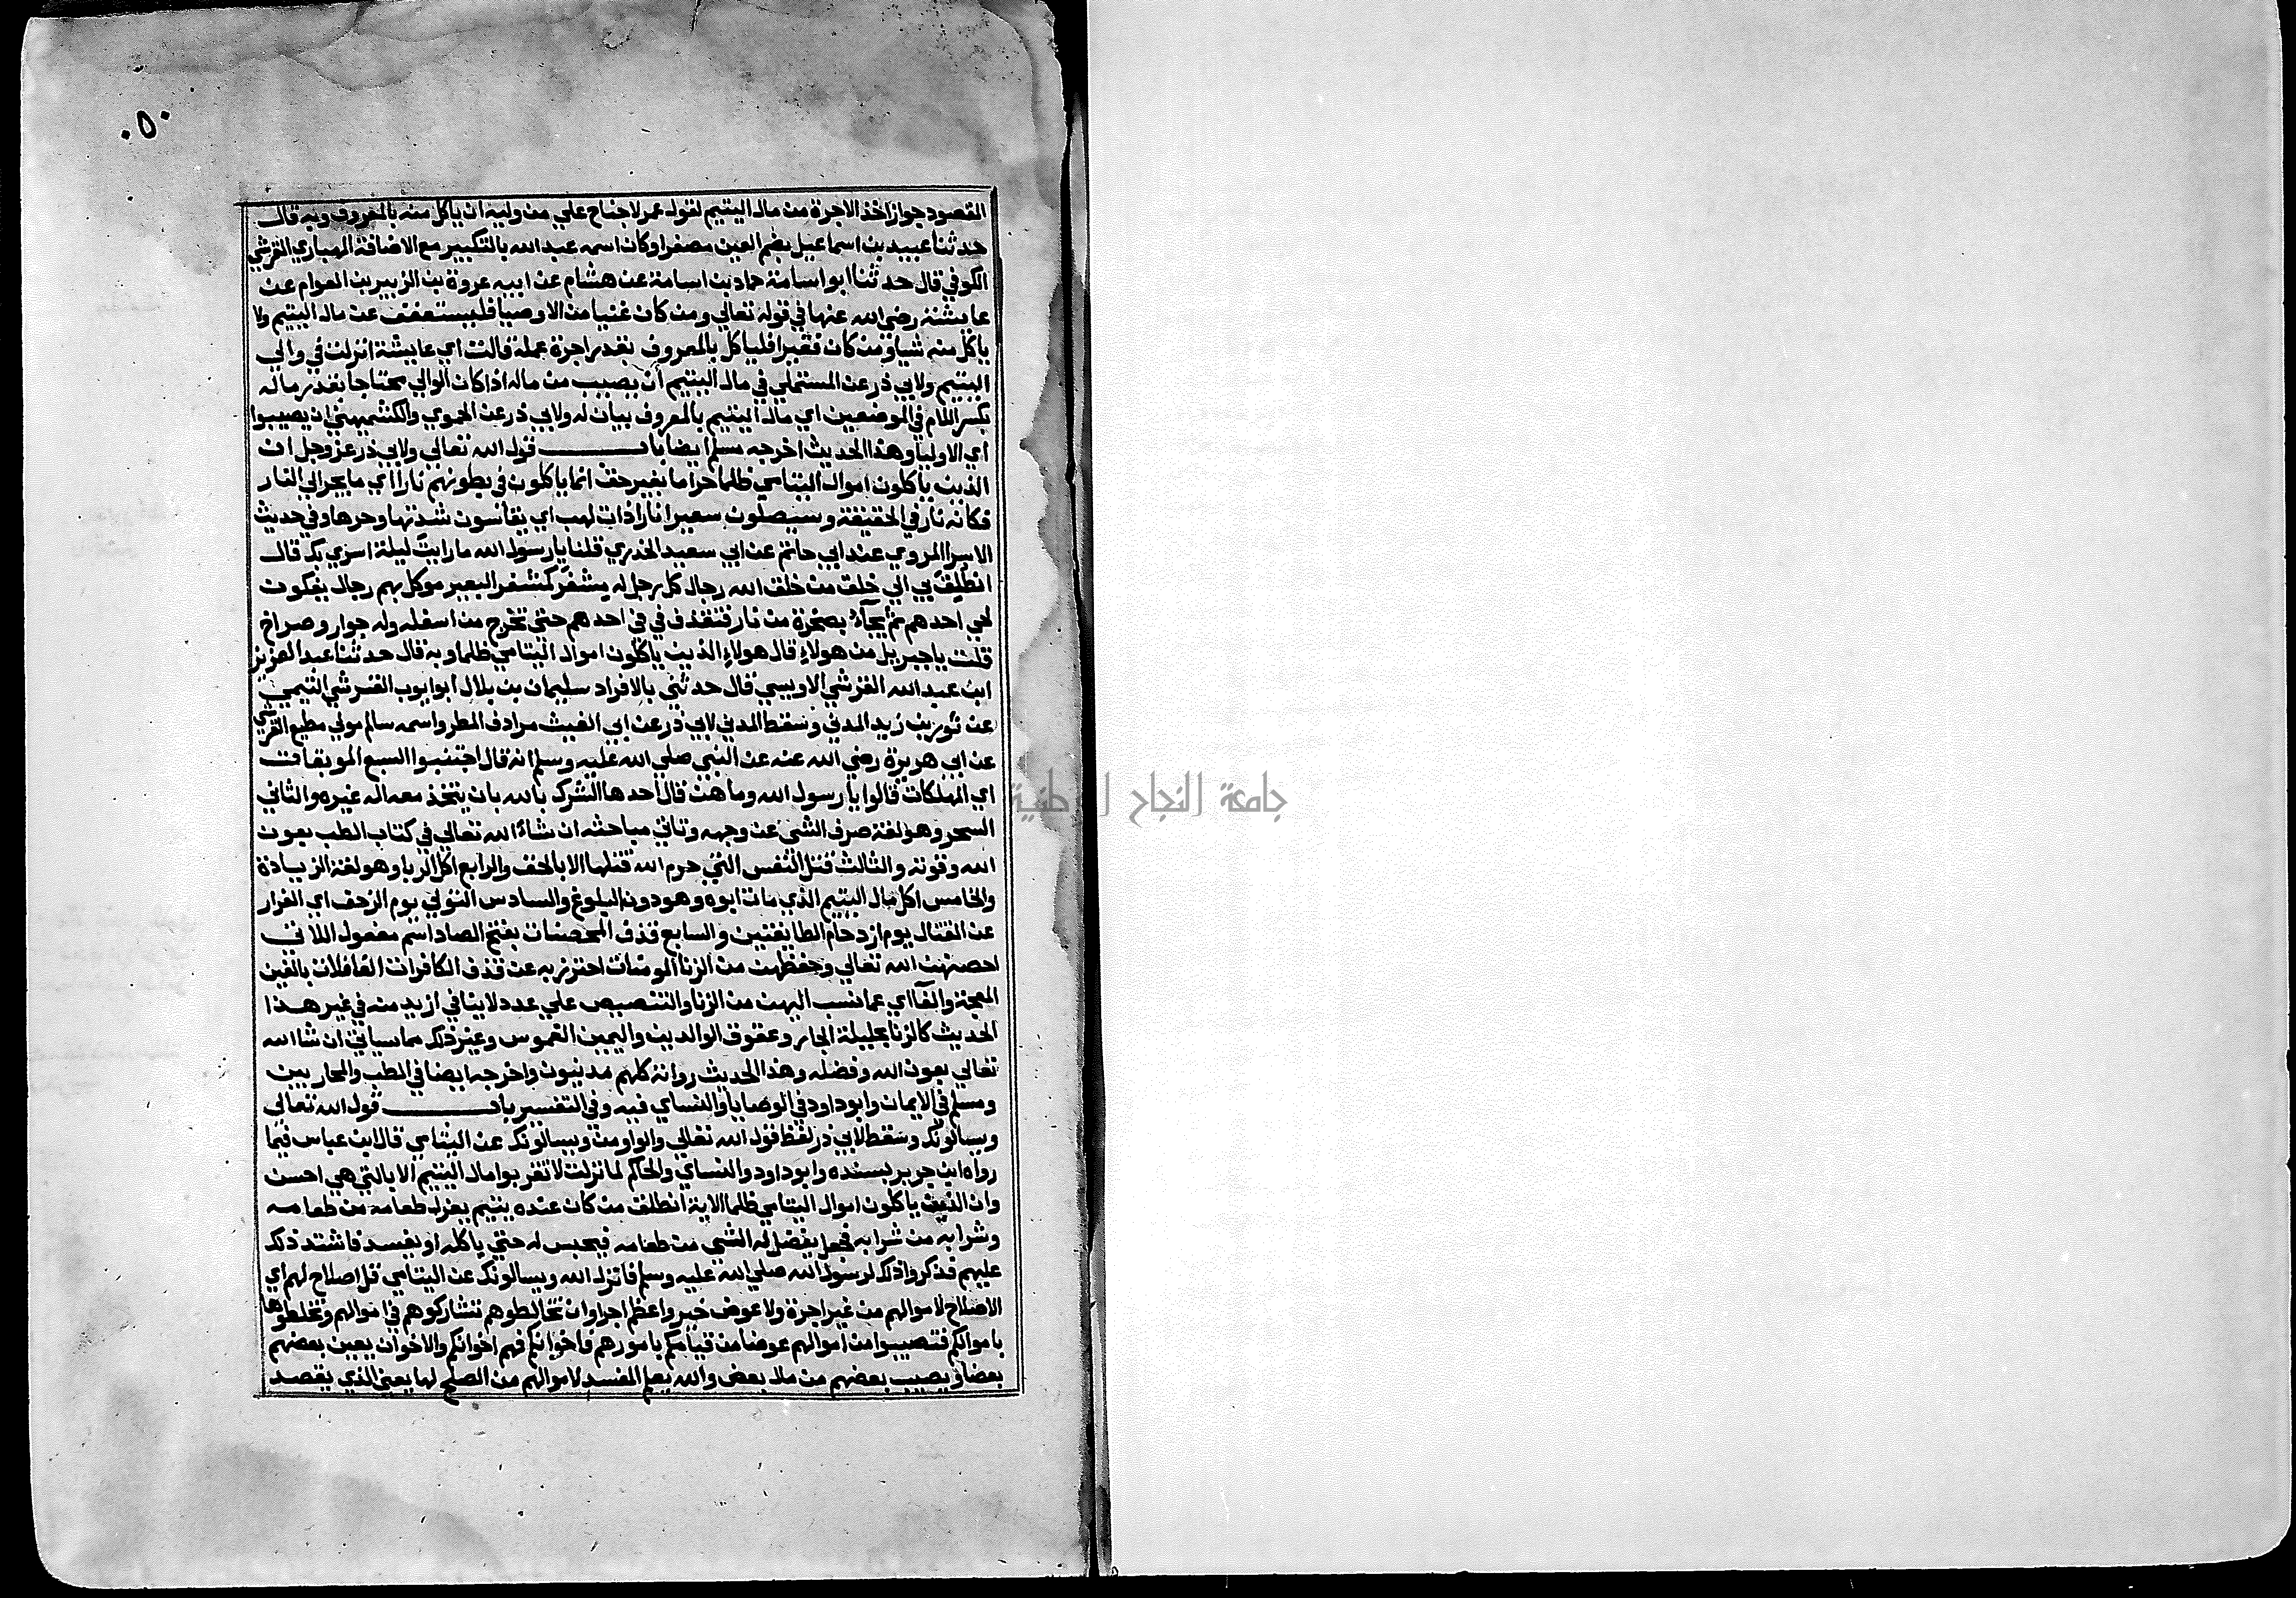 ٠٥٠
المقصود جواز اخذ الاجرة من مال اليتيم لقول عمر لا جناح علي من وليه ان ياكل منه بالمعروف وبه قال
حدثنا عبيد بن اسماعيل بضم العين مصغرا وكان اسمه عبد الله بالتكبير مع الاضافة الهباري القرشي
الكوفي قال حدثنا ابو اسامة حماد بن اسامة عن هشام عن ابيه عروة بن الزبير بن العوام عن
عايشة رضي الله عنها في قوله تعالي ومن كان غنيا من الاوصيا فليستعفف عن مال اليتيم ولا
ياكل منه شيا ومن كان فقيرا فلياكل بالمعروف بقدر اجرة عمله قالت اي عايشة انزلت في والي
اليتيم ولابي ذر عن المستملي في مال اليتيم ان يصيب من ماله اذا كان الوالي محتاجا بقدر ماله
بكسر اللام في الموضعين اي مال اليتيم بالمعروف بيان له ولابي ذر عن الحموي والكشميهني ان يصيبوا
اي الاوليا وهذا الحديث اخرجه مسلم ايضا باب قول الله تعالي ولابي ذر عز وجل ان
الذين ياكلون اموال اليتامي ظلما حراما بغير حق انما ياكلون في بطونهم نارا اي ما يجر الي النار
فكانه نار في الحقيقة وسيصلون سعيرا نارا ذات لهب اي يقاسون شدتها وحرها وفي حديث
الاسرا المروي عند ابي حاتم عن ابي سعيد الخدري قلنا يا رسول الله ما رايت ليلة اسري بك قال
انطلق بي الي خلق من خلق الله رجال كل رجل له مشفر كمشفر البعير موكل بهم رجال يفكون
لحي احدهم ثم يجآء بصخرة من نار فتقذف في في احدهم حتي تخرج من اسفله وله جوار وصراخ
قلت يا جبريل من هولاء قال هولاء الذين ياكلون اموال اليتامي ظلما وبه قال حدثنا عبد العزيز
ابن عبد الله القرشي الاويسي قال حدثني بالافراد سليمان بن بلال ابو ايوب القرشي التيمي
عن ثور بن زيد المدني وسقط المدني لابي ذر عن ابي الغيث مرادف المطر واسمه سالم مولي مطيع القرشي
عن ابي هريرة رضي الله عنه عن النبي صلي الله عليه وسلم انه قال اجتنبوا السبع الموبقات
اي المهلكات قالوا يا رسول الله وما هن قال احدها الشرك بالله بان يتخذ معه اله غيره والثاني
السحر وهو لغة صرف الشي عن وجهه وتاتي مباحثه ان شاء الله تعالي في كتاب الطب بعون
الله وقوته والثالث قتل النفس التي حرم الله قتلها الا بالحق والرابع اكل الربا وهو لغة الزيادة
والخامس اكل مال اليتيم الذي مات ابوه وهو دون البلوغ والسادس التولي يوم الزحف اي الفرار
عن القتال يوم ازدحام الطايفتين والسابع قذف المحصنات بفتح الصاد اسم مفعول اللاتي
احصنهن الله تعالي وحفظهن من الزنا المومنات احترز به عن قذف الكافرات الغافلات بالغين
المعجمة والفآ اي عما نسب اليهن من الزنا والتنصيص علي عدد لا ينافي ازيد منه في غير هذا
الحديث كالزنا بحليلة الجار وعقوق الوالدين واليمين الغموس وغير ذلك مما سياتي ان شا الله
تعالي بعون الله وفضله وهذا الحديث رواته كلهم مدنيون واخرجه ايضا في الطب والمحاربين
ومسلم في الايمان وابو داود في الوصايا والنساي فيه وفي التفسير باب قول الله تعالي
ويسالونك وسقط لابي ذر لفظ قول الله تعالي والواو من ويسالونك عن اليتامي قال ابن عباس فيما
رواه ابن جرير بسنده وابو داود والنساي والحاكم لما نزلت لا تقربوا مال اليتيم الا بالتي هي احسن
وان الذين ياكلون اموال اليتامي ظلما الاية انطلق من كان عنده يتيم يعزل طعامه من طعامه
وشرابه من شرابه فجعل يفضل له الشي من طعامه فيحبس له حتي ياكله او يفسد فاشتد ذلك
عليهم فذكروا ذلك لرسول الله صلي الله عليه وسلم فانزل الله ويسالونك عن اليتامي قل اصلاح لهم اي
الاصلاح لاموالهم من غير اجرة ولا عوض خير واعظم اجرا وان تخالطوهم تشاركوهم في اموالهم وتخلطوها
باموالكم فتصيبوا من اموالهم عوضا من قيامكم بامورهم فاخوانكم فهم اخوانكم والاخوان يعين بعضهم
بعضا ويصيب بعضهم من مال بعض والله يعلم المفسد لاموالهم من المصلح لها يعني الذي يقصد
جامعة النجاح الوطنية